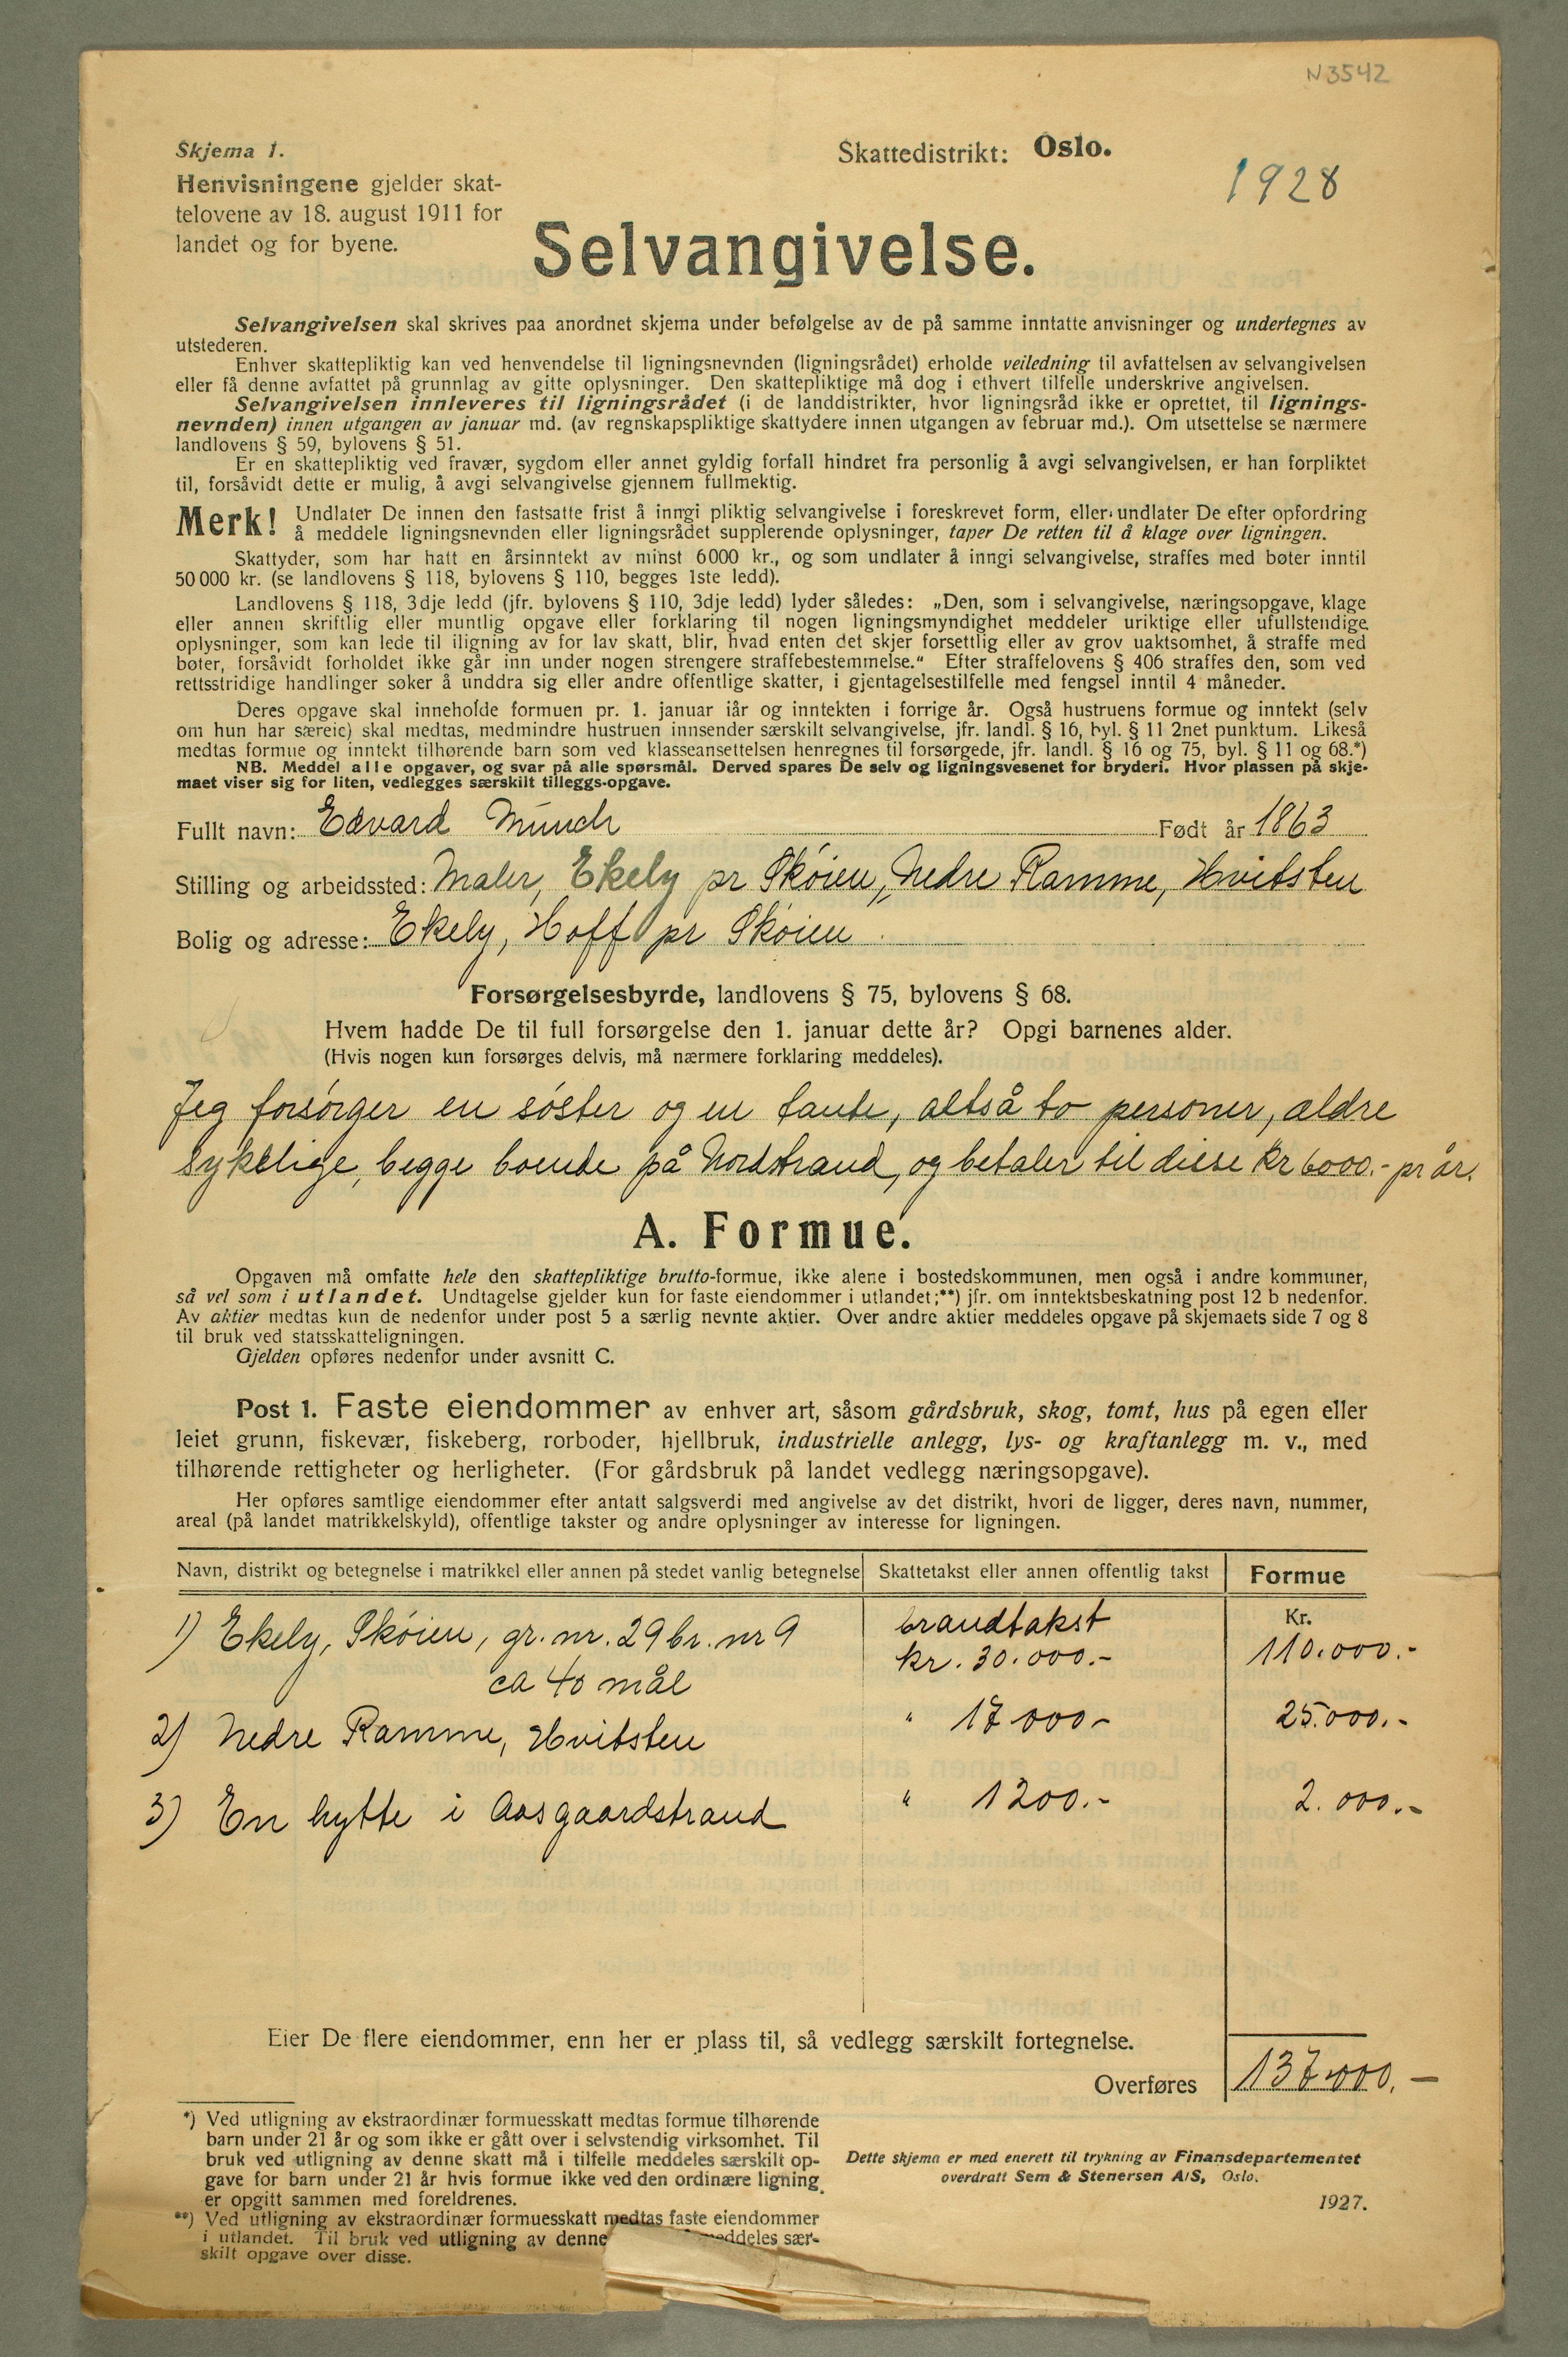 N3542
Skjema 1.
Skattedistrikt: Oslo.
1928
Henvisningene gjelder skat-
telovene av 18. august 1911 for
landet og for byene.
Selvangivelse.
Selvangivelsen skal skrives paa anordnet skjema under befølgelse av de på samme inntatte anvisninger og undertegnes av
utstederen.
Enhver skattepliktig kan ved henvendelse til ligningsnevnden (ligningsrådet) erholde veiledning til avfattelsen av selvangivelsen
eller få denne avfattet på grunnlag av gitte oplysninger. Den skattepliktige må dog i ethvert tilfelle underskrive angivelsen.
Selvangivelsen innleveres til ligningsrådet (i de landdistrikter, hvor ligningsråd ikke er oprettet, til lignings-
nevnden) innen utgangen av januar md. (av regnskapspliktige skattydere innen utgangen av februar md.). Om utsettelse se nærmere
landlovens § 59, bylovens § 51.
Er en skattepliktig ved fravær, sygdom eller annet gyldig forfall hindret fra personlig å avgi selvangivelsen, er han forpliktet
til, forsåvidt dette er mulig, å avgi selvangivelse gjennem fullmektig.
Merk! Undlater De innen den fastsatte frist å inngi pliktig selvangivelse i foreskrevet form, eller undlater De efter opfordring
å meddele ligningsnevnden eller ligningsrådet supplerende oplysninger, taper De retten til å klage over ligningen.
Skattyder, som har hatt en årsinntekt av minst 6000 kr., og som undlater å inngi selvangivelse, straffes med bøter inntil
50 000 kr. (se landlovens § 118, bylovens § 110, begges 1ste ledd).
Landlovens § 118, 3dje ledd (jfr. bylovens § 110, 3dje ledd) lyder således: „Den, som i selvangivelse, næringsopgave, klage
eller annen skriftlig eller muntlig opgave eller forklaring til nogen ligningsmyndighet meddeler uriktige eller ufullstendige
oplysninger, som kan lede til iligning av for lav skatt, blir, hvad enten det skjer forsettlig eller av grov uaktsomhet, å straffe med
bøter, forsåvidt forholdet ikke går inn under nogen strengere straffebestemmelse.“ Efter straffelovens § 406 straffes den, som ved
rettsstridige handlinger søker å unddra sig eller andre offentlige skatter, i gjentagelsestilfelle med fengsel inntil 4 måneder.
Deres opgave skal inneholde formuen pr. 1. januar iår og inntekten i forrige år. Også hustruens formue og inntekt (selv
om hun har særeie) skal medtas, medmindre hustruen innsender særskilt selvangivelse, jfr. landl. § 16, byl. § 11 2net punktum. Likeså
medtas formue og inntekt tilhørende barn som ved klasseansettelsen henregnes til forsørgede, jfr. landl. § 16 og 75, byl. § 11 og 68.*)
NB. Meddel alle opgaver, og svar på alle spørsmål. Derved spares De selv og ligningsvesenet for bryderi. Hvor plassen på skje-
maet viser sig for liten, vedlegges særskilt tilleggs-opgave.
Fullt navn: Edvard Munch Født år 1863
Stilling og arbeidssted: Maler, Ekely pr Skóien, Nedre Ramme, Hvitsten
Bolig og adresse: Ekely, Hoff pr Skóien
Forsørgelsesbyrde, landlovens § 75, bylovens § 68.
Hvem hadde De til full forsørgelse den 1. januar dette år? Opgi barnenes alder.
(Hvis nogen kun forsørges delvis, må nærmere forklaring meddeles).
Jeg forsórger en sóster og en tante, altså to personer, ældre
sykelige, begge boende på Nordstrand, og betaler til disse kr 6000.- pr år.
A. Formue.
Opgaven må omfatte hele den skattepliktige brutto-formue, ikke alene i bostedskommunen, men også i andre kommuner,
så vel som i utlandet. Undtagelse gjelder kun for faste eiendommer i utlandet;**) jfr. om inntektsbeskatning post 12 b nedenfor.
Av aktier medtas kun de nedenfor under post 5 a særlig nevnte aktier. Over andre aktier meddeles opgave på skjemaets side 7 og 8
til bruk ved statsskatteligningen.
Gjelden opføres nedenfor under avsnitt C.
Post 1. Faste eiendommer av enhver art, såsom gårdsbruk, skog, tomt, hus på egen eller
leiet grunn, fiskevær, fiskeberg, rorboder, hjellbruk, industrielle anlegg, lys- og kraftanlegg m. v., med
tilhørende rettigheter og herligheter. (For gårdsbruk på landet vedlegg næringsopgave).
Her opføres samtlige eiendommer efter antatt salgsverdi med angivelse av det distrikt, hvori de ligger, deres navn, nummer,
areal (på landet matrikkelskyld), offentlige takster og andre oplysninger av interesse for ligningen.
Navn, distrikt og betegnelse i matrikkel eller annen på stedet vanlig betegnelse Skattetakst eller annen offentlig takst Formue
Kr.
1) Ekely, Skóien, gr. nr. 29 br. nr 9 brandtakst kr. 30.000.- 110.000.-
ca 40 mål
2) Nedre Ramme, Hvitsten " 17 000- 25.000.-
3) En hytte i Aasgaardstrand " 1200.- 2.000.-
Eier De flere eiendommer, enn her er plass til, så vedlegg særskilt fortegnelse.
Overføres 137.000.-
*) Ved utligning av ekstraordinær formuesskatt medtas formue tilhørende
barn under 21 år og som ikke er gått over i selvstendig virksomhet. Til
bruk ved utligning av denne skatt må i tilfelle meddeles særskilt op-
gave for barn under 21 år hvis formue ikke ved den ordinære ligning
er opgitt sammen med foreldrenes.
**) Ved utligning av ekstraordinær formuesskatt medtas faste eiendommer
i utlandet. Til bruk ved utligning av denne meddeles sær-
skilt opgave over disse.
Dette skjema er med enerett til trykning av Finansdepartementet
overdratt Sem & Stenersen A/S, Oslo.
1927.